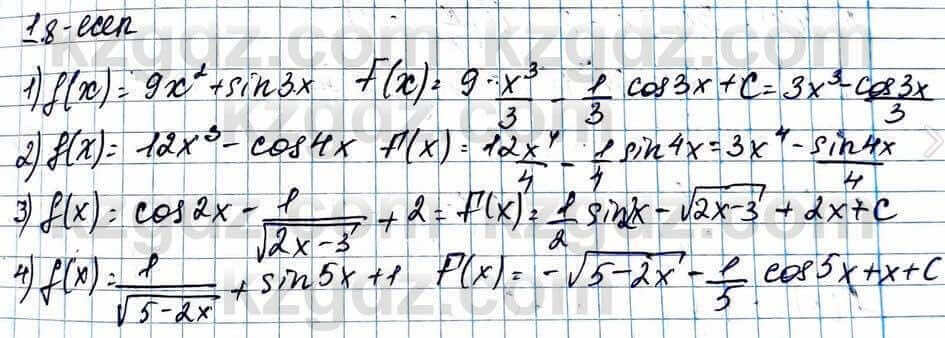 1.8-есеп
1) f(x) = 9x² + sin3x F(x) = 9 · x³/3 - 1/3 cos3x + C = 3x³ - cos3x/3
2) f(x) = 12x³ - cos4x F(x) = 12x⁴/4 - 1/4 sin4x = 3x⁴ - sin4x/4
3) f(x) = cos2x - 1/√(2x-3) + 2 = F(x) = 1/2 sin2x - √(2x-3) + 2x + C
4) f(x) = 1/√(5-2x) + sin5x + 1 F(x) = -√(5-2x) - 1/5 cos5x + x + C
kzgdz.com